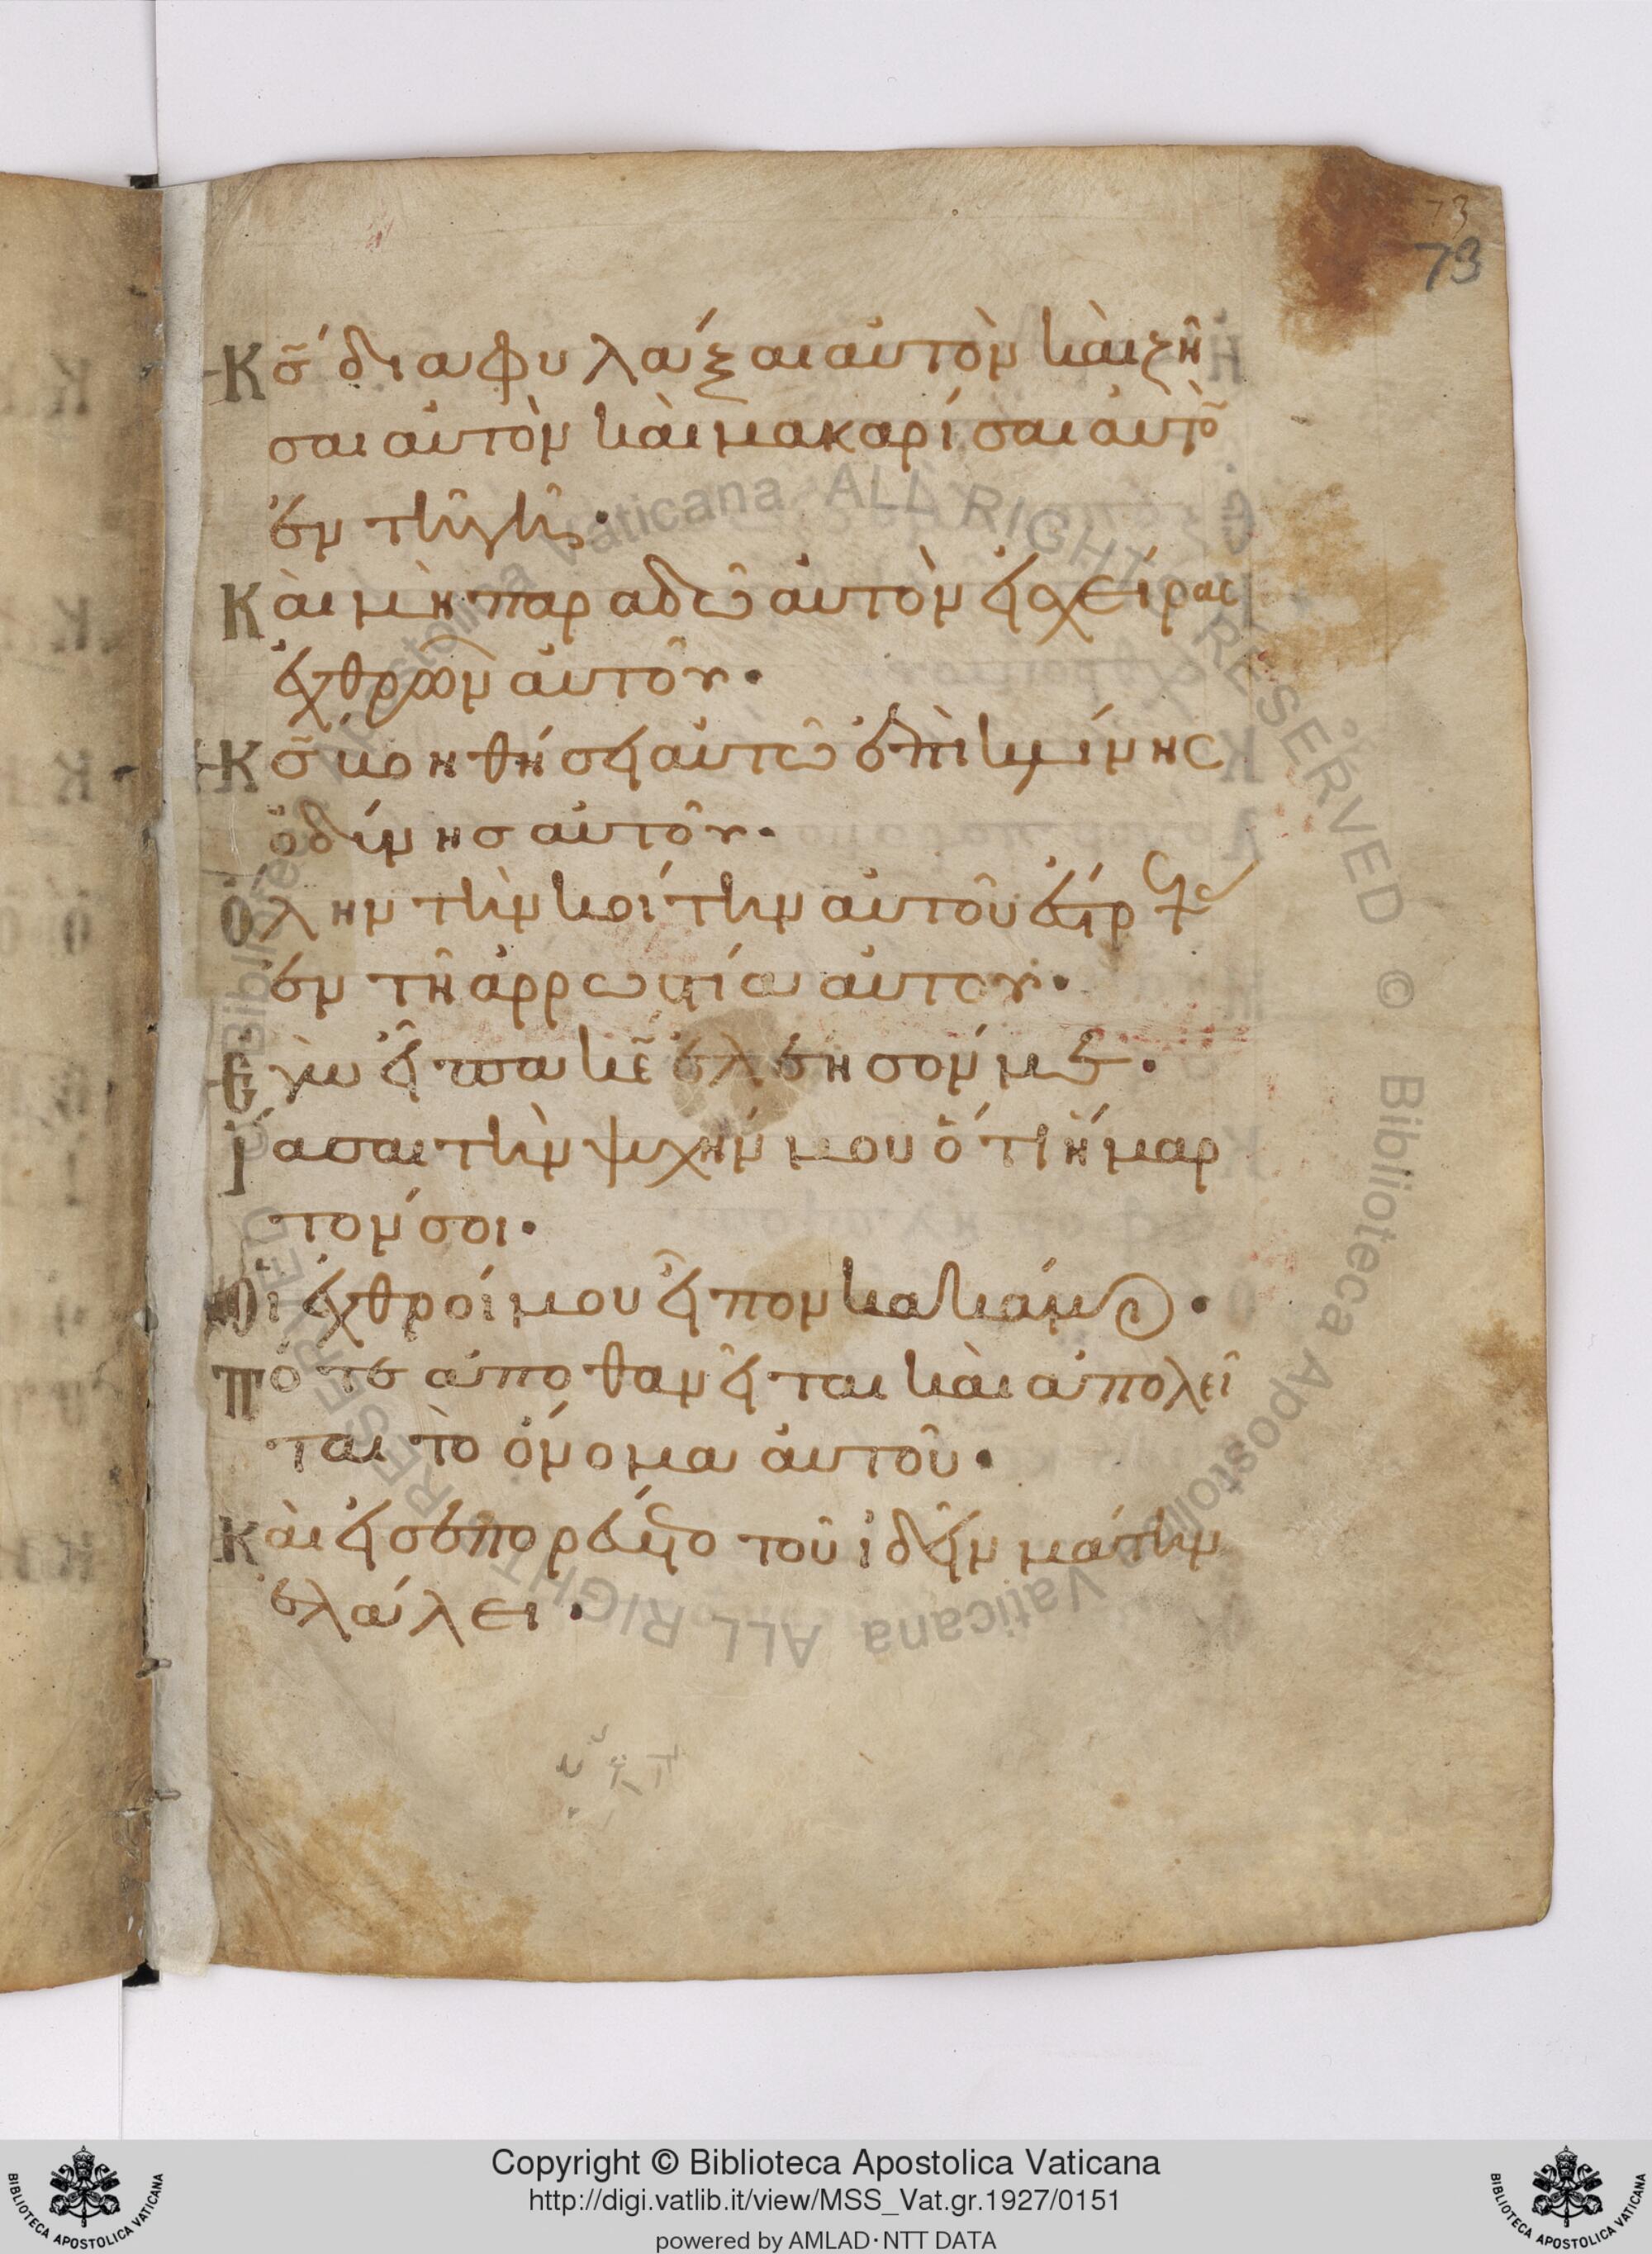 73
73
Κς̃ διαφυλάξαι αὐτὸν καὶ ζῆ
σαι αὐτὸν καὶ μακαρίσαι αὐτὸ̃
ἐν τῆ γῆ·
Καὶ μὴ παραδῶ αὐτὸν εἰς χεῖρας
ἐχθρῶν αὐτοῦ·
Κς̃ βοηθήσει αὐτῶ ἐπὶ κλίνης
ὀδύνης αὐτοῦ·
Ὅλην τὴν κοίτην αὐτοῦ ἔστρεψας
ἐν τῆ ἀρρωστία αὐτοῦ·
Ἐγὼ εἶπα κε̃ ἐλέησόν με·
Ἴασαι τὴν ψυχήν μου ὅτι ἥμαρ
τόν σοι·
Οἱ ἐχθροί μου εἶπον κακά μοι·
Πότε ἀποθανεῖται καὶ ἀπολεῖ
ται τὸ ὄνομα αὐτοῦ·
Καὶ εἰσεπορεύετο τοῦ ἰδεῖν μάτην
ἐλάλει·
Copyright © Biblioteca Apostolica Vaticana
http://digi.vatlib.it/view/MSS_Vat.gr.1927/0151
powered by AMLAD·NTT DATA
BIBLIOTECA APOSTOLICA VATICANA
BIBLIOTECA APOSTOLICA VATICANA
© Biblioteca Apostolica Vaticana ALL RIGHTS RESERVED
© Biblioteca Apostolica Vaticana ALL RIGHTS RESERVED